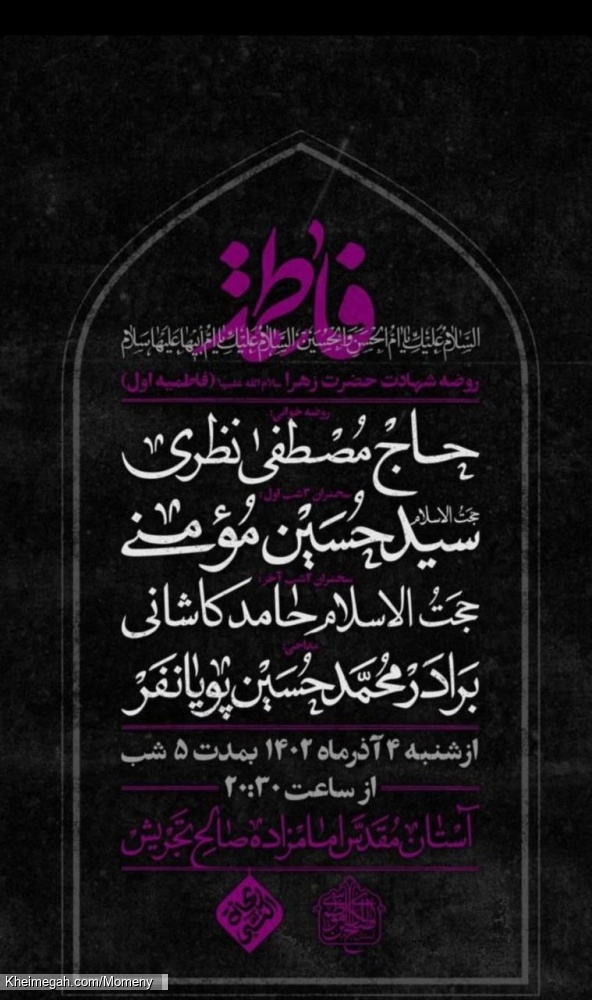 فاطمة
السلام علیك یا ام الحسن والحسین، السلام علیك یا ام ابیها علیها سلام
روضه شهادت حضرت زهرا سلام الله علیها (فاطمیه اول)
روضه خوانی:
حاج مصطفی نظری
سخنران ۳ شب اول:
حجت الاسلام
سید حسین مؤمنی
سخنران ۲ شب آخر:
حجت الاسلام حامد کاشانی
مداحی:
برادر محمد حسین پویانفر
از شنبه ۴ آذر ماه ۱۴۰۲ بمدت ۵ شب
از ساعت ۲۰:۳۰
آستان مقدس امامزاده صالح تجریش
Kheimegah.com/Momeny